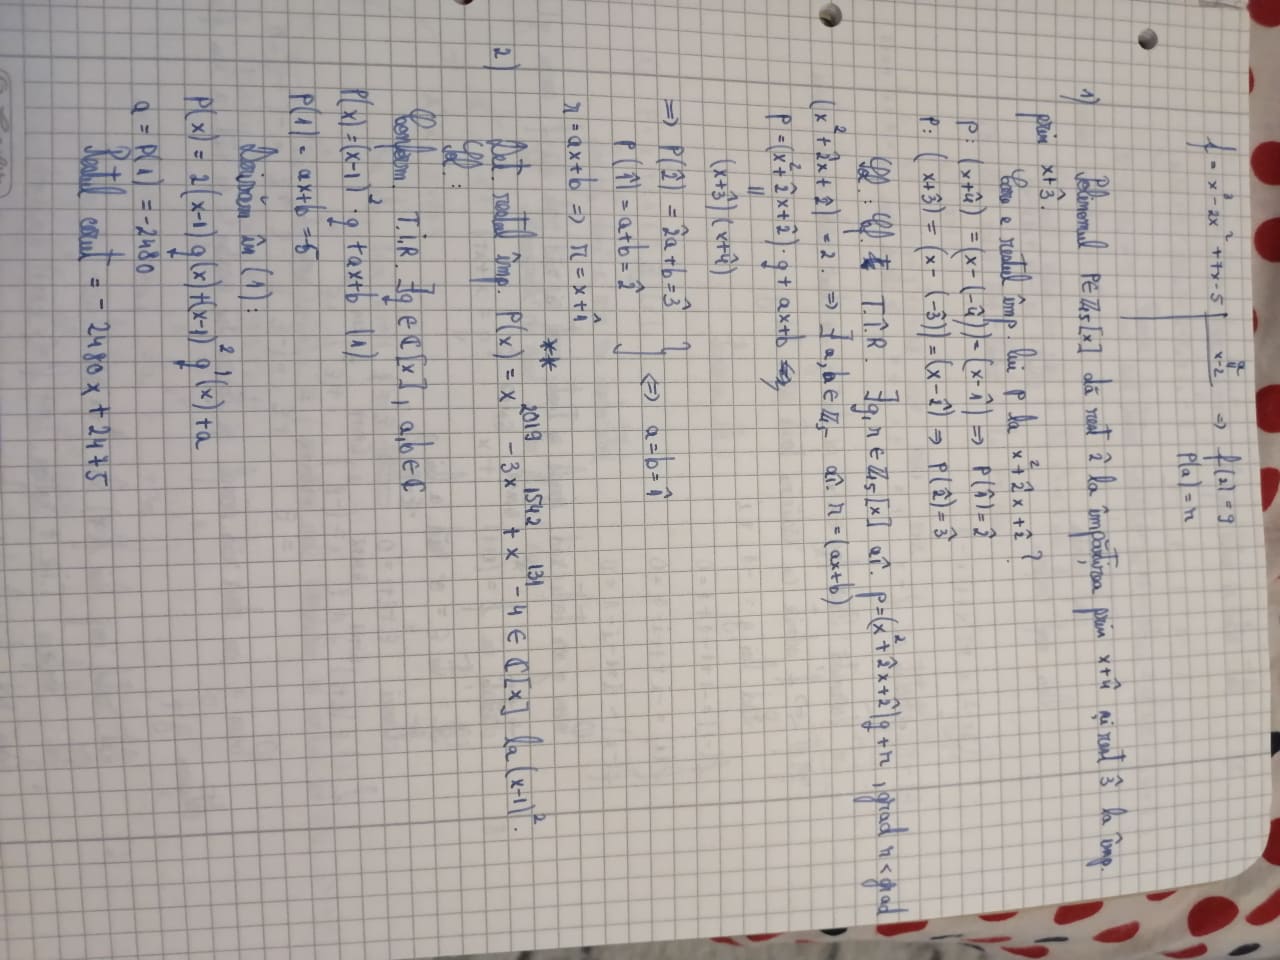 f = x³ - 2x² + 7x - 5 | x-2 ⇒ f(2) = 9
a
P(a) = r
1) Polinomul P∈ℤ₅[x] dă rest 2̂ la împărțirea prin x+4̂ și rest 3̂ la împ.
prin x+3̂.
Care e restul împ. lui P la x²+2̂x+2̂?
P: (x+4̂) = (x-(-4̂)) = (x-1̂) ⇒ P(1̂) = 2̂
P: (x+3̂) = (x-(-3̂)) = (x-2̂) ⇒ P(2̂) = 3̂
T.Î.R. ∃ q, r ∈ ℤ₅[x] aî. P=(x²+2̂x+2̂)q+r, grad r < grad
(x²+2̂x+2̂) = 2. ⇒ ∃ a,b∈ℤ₅ aî. r=(ax+b)
P=(x²+2̂x+2̂)q+ax+b
||
(x+3̂)(x+4̂)
⇒ P(2̂) = 2̂a+b=3̂
P(1̂) = a+b=2̂ } ⇔ a=b=1̂
r=ax+b ⇒ r=x+1̂
**
2) Det. restul împ. P(x) = x²⁰¹⁹ - 3x¹⁵⁴² + x¹³¹ - 4 ∈ ℂ[x] la (x-1)².
Conform T.Î.R. ∃q∈ℂ[x], a,b∈ℂ
P(x)=(x-1)²·q+ax+b (1)
P(1) = ax+b = 5
Derivăm în (1):
P(x) = 2(x-1)q(x)+(x-1)²q'(x)+a
a = P(1) = -2480
Restul căutat = -2480x+2475